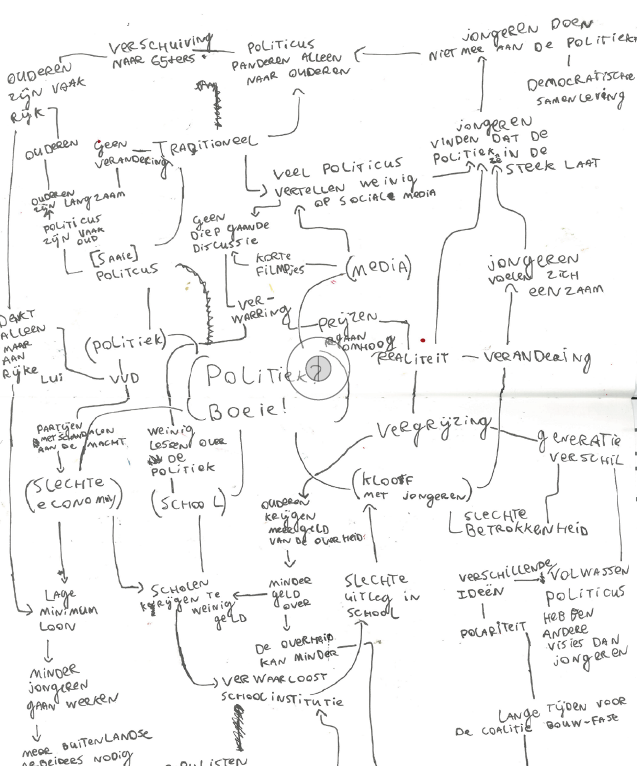 VERSCHUIVING
NAAR
POLITICUS
PANDEREN ALLEEN
NAAR OUDEREN
JONGEREN DOEN
NIET MEE AAN DE POLITIEK
DEMOCRATISCHE
SAMENLEVING
OUDEREN
ZIJN VAAK
RIJK
OUDEREN
GEEN
VERANDERING
TRADITIONEEL
JONGEREN
VINDEN DAT DE
POLITIEK ZE IN DE
STEEK LAAT
VEEL POLITICUS
VERTELLEN WEINIG
OP SOCIALE MEDIA
OUDEREN
ZIJN LANGZAAM
POLITICUS
ZIJN VAAK
OUD
GEEN
DIEP GAANDE
DISCUSSIE
[SAAIE]
POLITCUS
KORTE
FILMPJES
(MEDIA)
JONGEREN
VOELEN ZICH
EENZAAM
VER-
WARRING
PRIJZEN
GAAN
OMHOOG
DENKT
ALLEEN
MAAR
AAN
RIJKE
LUI
(POLITIEK)
VVD
POLITIEK?
BOEIE!
REALITEIT
VERANDERING
PARTIJEN
MET SCHANDALEN
AAN DE MACHT
WEINIG
LESSEN OVER
DE
POLITIEK
VERGRIJZING
GENERATIE
VERSCHIL
(SLECHTE
ECONOMY)
(SCHOOL)
OUDEREN
KRIJGEN
MEER GELD
VAN DE OVERHEID
(KLOOF
MET JONGEREN)
SLECHTE
BETROKKENHEID
LAGE
MINIMUM
LOON
SCHOLEN
KRIJGEN TE
WEINIG
GELD
MINDER
GELD
OVER
SLECHTE
UITLEG IN
SCHOOL
VERSCHILLENDE
IDEËN
VOLWASSEN
POLITICUS
HEBBEN
ANDERE
VISIES DAN
JONGEREN
POLARITEIT
DE OVERHEID
KAN MINDER
MINDER
JONGEREN
GAAN WERKEN
VERWAARLOOST
SCHOOL INSTITUTIE
LANGE TIJDEN VOOR
DE COALITIE BOUW-FASE
MEER BUITENLANDSE
NODIG